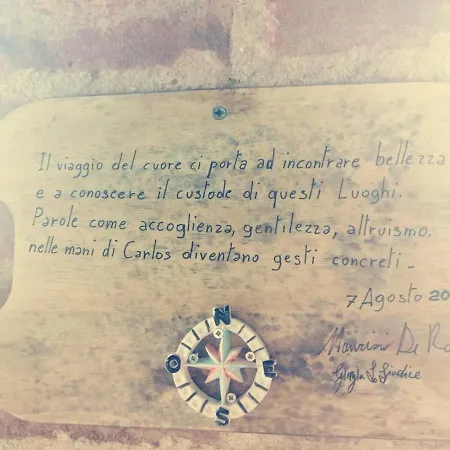 Il viaggio del cuore ci porta ad incontrare bellezza
e a conoscere il custode di questi Luoghi.
Parole come accoglienza, gentilezza, altruismo,
nelle mani di Carlos diventano gesti concreti_
7 Agosto 20
De Ro
Giudice
N
O E
S